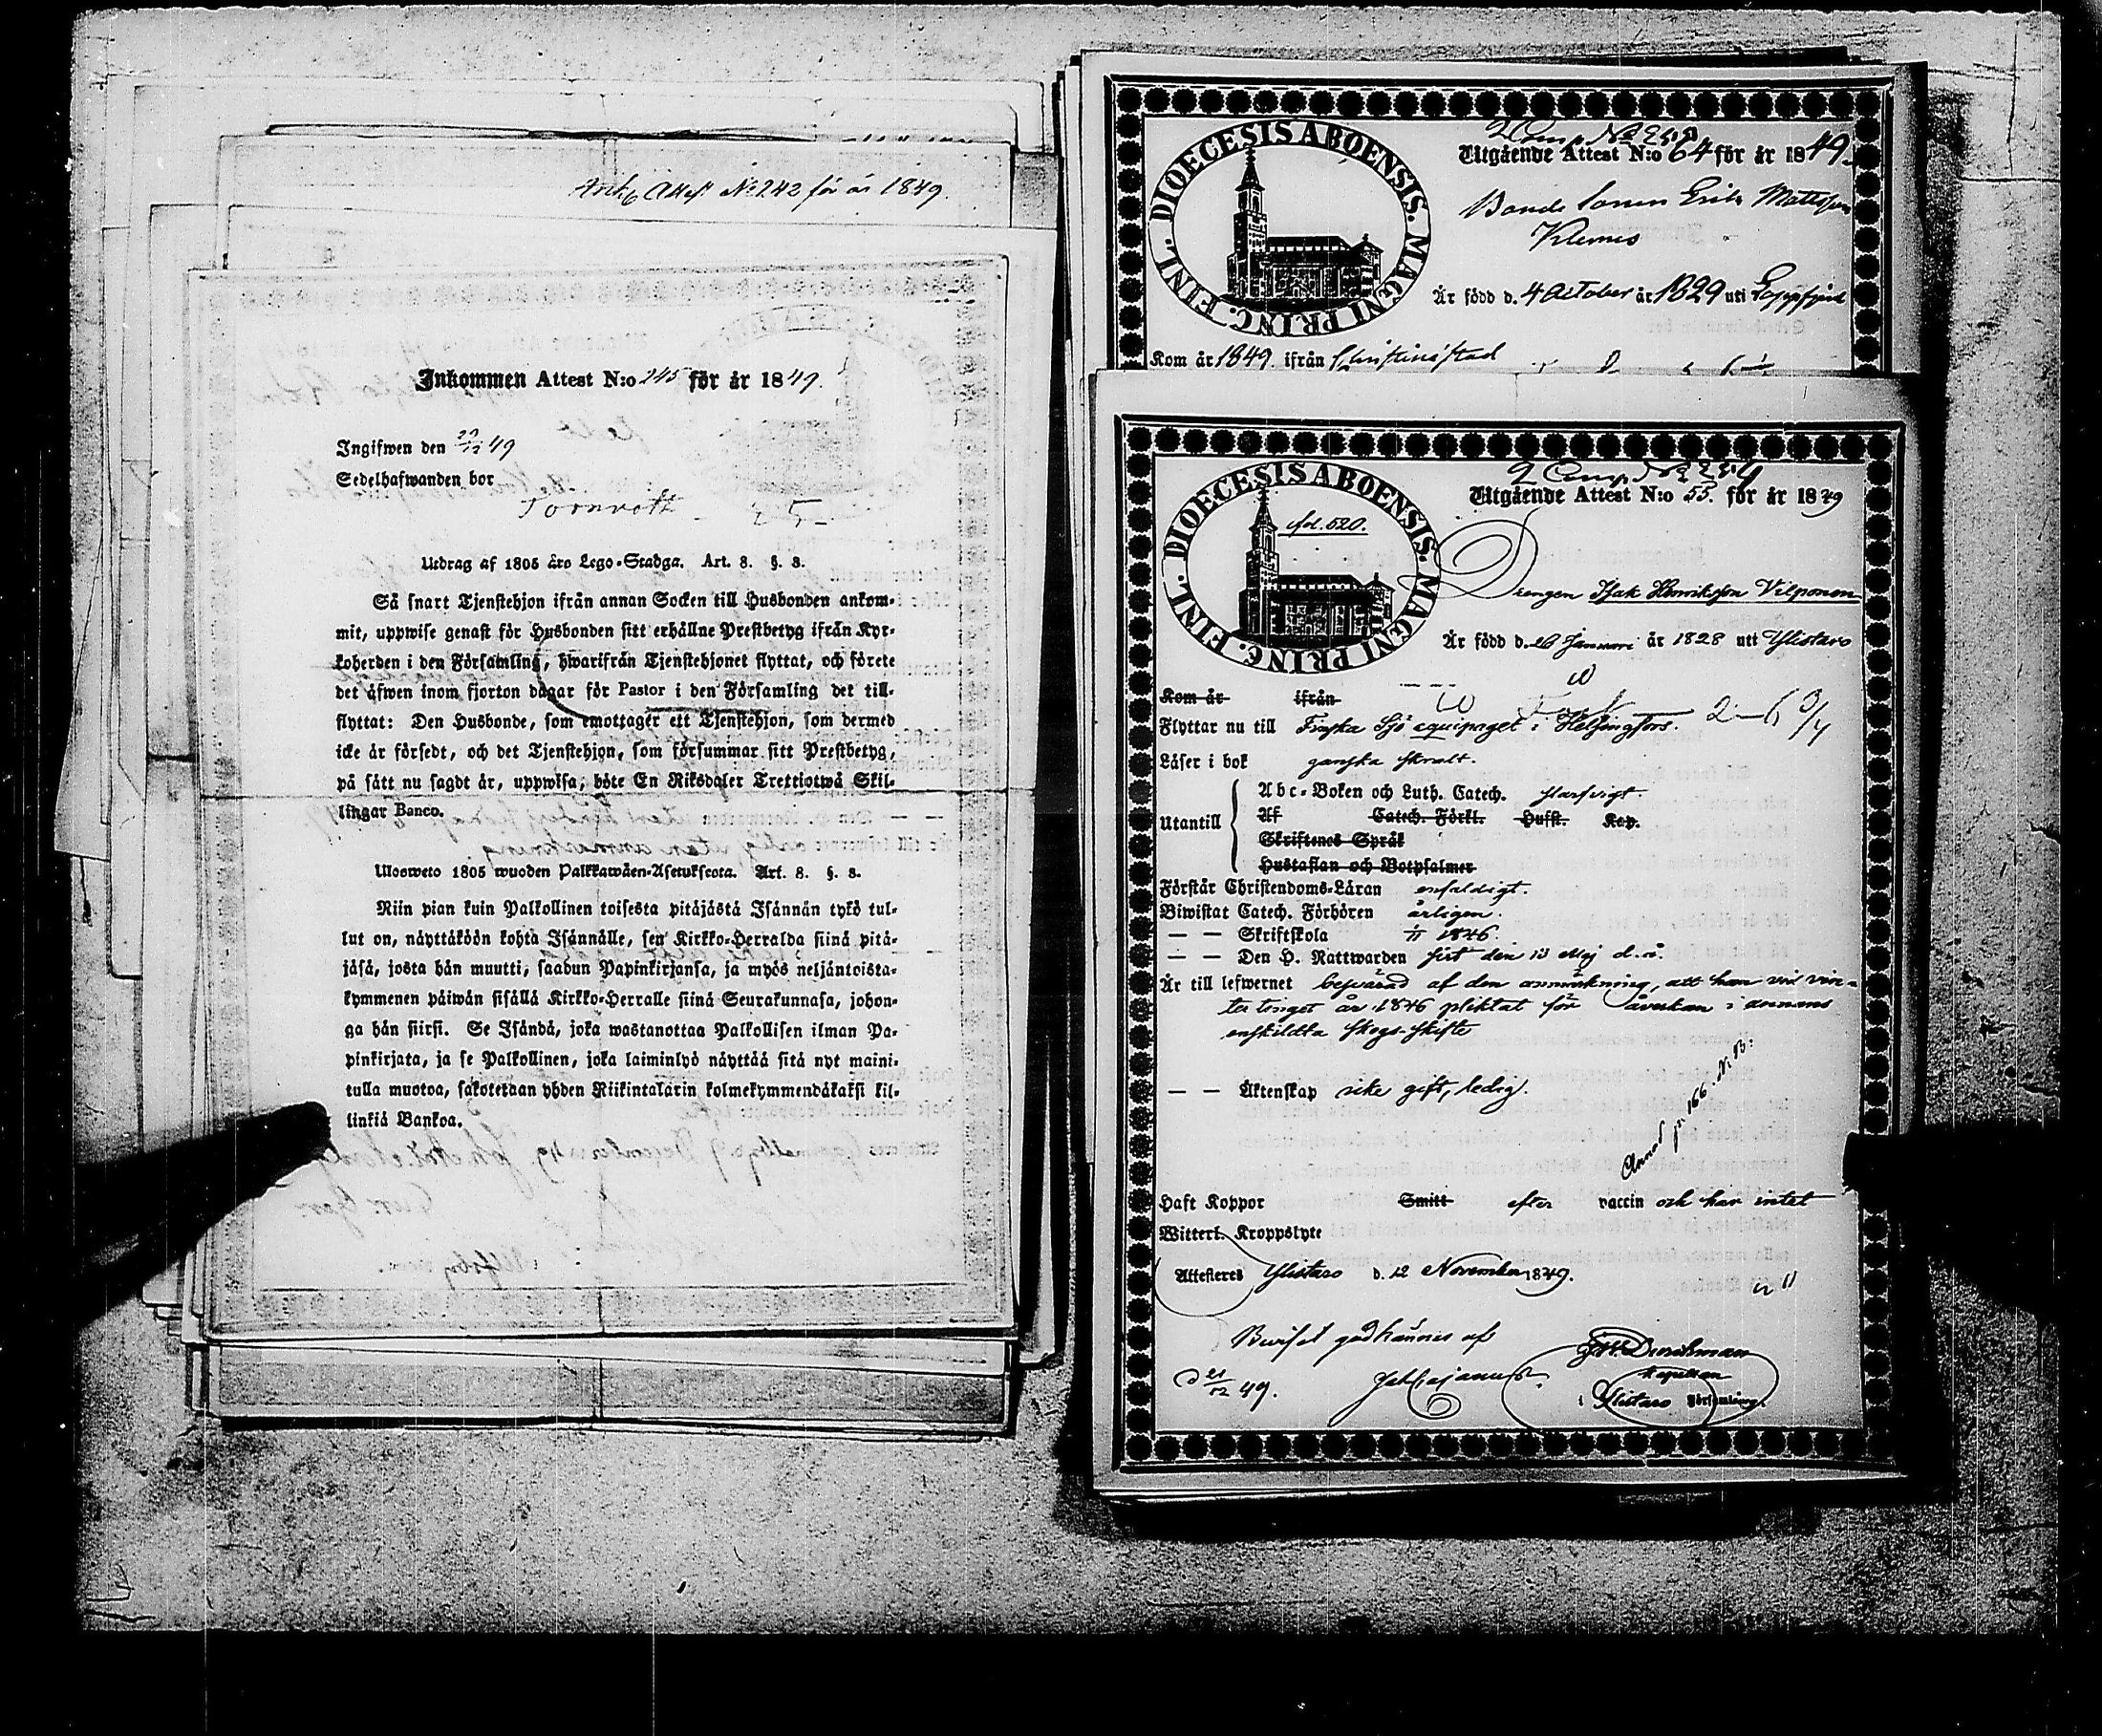 Ank. Attest No 242 för år 1849.
Inkommen Attest N:o 245 för år 1849.
Ingifwen den 29/12 49
Sedelhafwanden bor
Utdrag af 1805 års Lego-Stadga. Art. 8. §. 8.
Så snart Tjenstehjon ifrån annan Socken till Husbonden ankom-
mit, uppwise genast för Husbonden sitt erhållne Prestbetyg ifrån Kyr-
koherden i den Församling, hwarifrån Tjenstehjonet flyttat, och förete
det äfwen inom fjorton dagar för Pastor i den Församling det till-
flyttat: Den Husbonde, som emottager ett Tjenstehjon, som dermed
icke är försedt, och det Tjenstehjon, som försummar sitt Prestbetyg,
på sätt nu sagdt är, uppwisa, böte En Riksdaler Trettiotwå Skil-
lingar Banco.
Ulosweto 1805 wuoden Palkkawäen-Asetuksesta. Art. 8. §. 8.
Niin pian kuin Palkollinen toisesta pitäjästä Isännän tykö tul-
lut on, näyttäköön kohta Isännälle, sen Kirkko-Herralda siinä pitä-
jäsä, josta hän muutti, saadun Papinkirjansa, ja myös neljäntoista-
kymmenen päiwän sisällä Kirkko-Herralle siinä Seurakunnasa, johon-
ga hän siirsi. Se Isändä, joka wastanottaa Palkollisen ilman Pa-
pinkirjata, ja se Palkollinen, joka laiminlyö näyttää sitä nyt maini-
tulla muotoa, sakotetaan yhden Riikintalarin kolmekymmendäkaksi kil-
linkiä Bankoa.
DIOECESIS ABOENSIS. MAGNI PRINC. FINL.
Utgående Attest N:o 64 för år 1849.
Bonde Sonen Erik Mattsson
Klemes
Är född d. 4 October år 1829 uti Lappfjärd
Kom år 1849. ifrån Christinæstad
DIOECESIS ABOENSIS. MAGNI PRINC. FINL.
fol. 520.
2 Comp. No 254
Utgående Attest N:o 55. för år 1849
Drengen Isak Henriksson Vilponen
Är född d. 26 Januari år 1828 uti Ylistaro
Kom år ifrån
Flyttar nu till Finska Sjö equipaget i Helsingfors.
Läser i bok ganska skralt.
Utantill
Abc-Boken och Luth. Catech. slarfvigt.
Af Catech. Förkl. Hufst. Kap.
Skriftenes Språk
Hustaflan och Botpsalmer
Förstår Christendoms-Läran enfaldigt.
Biwistat Catech. Förhören årligen.
— — Skriftskola 1846.
— — Den H. Nattwarden sist den 13 Maj d.å.
Är till lefwernet beswärad af den anmärkning, att han vid vin-
tertinget år 1846 pliktat för åverkan i annans
enskildta skogs-skifte
— — Äktenskap icke gift, ledig.
Annot. p. 166. N.B:
Haft Koppor Smitt efter vaccin och har intet
Witterl. Kroppslyte
Attesteres Ylistaro d. 12 November 1849.
Beviset godkännes af
d 21/12 49.
Kapellan
i Ylistaro Församling.